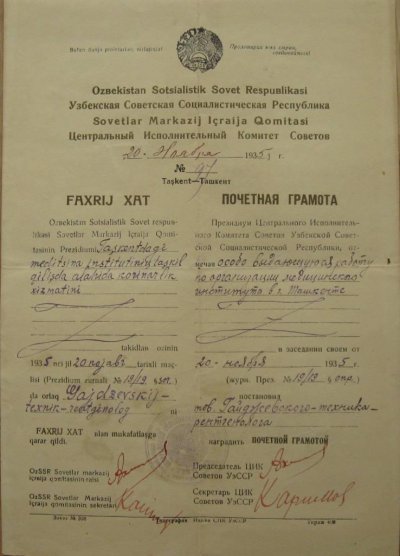 Butun dunja proletarlari, birlaşiniz!
Пролетарии всех стран, соединяйтесь!
Ozbekistan Sotsialistik Sovet Respublikasi
Узбекская Советская Социалистическая Республика
Sovetlar Markazij Içraija Qomitasi
Центральный Исполнительный Комитет Советов
20. Ноября 1935 г.
№ 91
Taşkent—Ташкент
FAXRIJ XAT
Ozbekistan Sotsialistik Sovet respub-
likasi Sovetlar Markazij Içraija Qomi-
tasinin Prezidiumi Taşkentdagi
meditsina institutinin taşkil
qilişda alahida kornarlik
xizmatini
takdirlav ozinin
1935 nci jil 20 nojabr tarixli maç-
lisi (Prezidium zurnali № 19/19 § )
da ortaq Gajdzevskij-
texnik-rentgenolog ni
FAXRIJ XAT bilan mukafatlaşga
qarar qildi.
OzSSR Sovetlar markazij
içraija qomitasinin raisi
OzSSR Sovetlar Markazij
Içraija qomitasinin sekretari
Заказ № 308
ПОЧЕТНАЯ ГРАМОТА
Президиум Центрального Исполнитель-
ного Комитета Советов Узбекской Совет-
ской Социалистической Республики, от-
мечая особо выдающуюся работу
по организации медицинского
института в г. Ташкенте
в заседании своем от
20 ноября 1935 г.
(журн. През. № 19/19 § опр.)
постановил
тов. Гайджевского-техника-
рентгенолога
наградить ПОЧЕТНОЙ ГРАМОТОЙ
Председатель ЦИК
Советов УзССР
Секретарь ЦИК
Советов УзССР
Каримов
Типография
Тираж